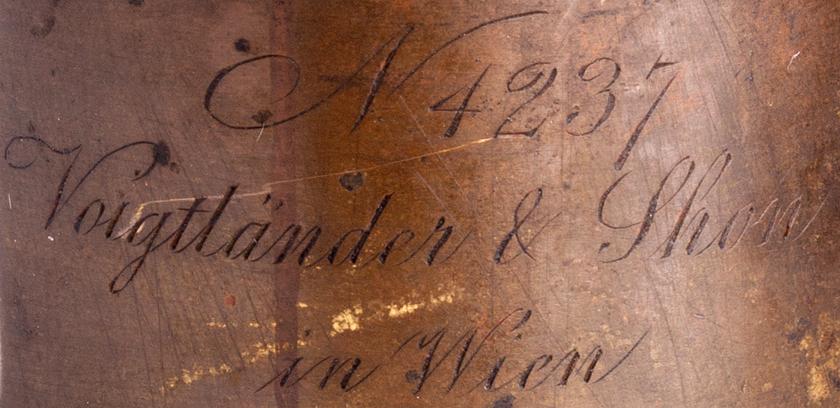 N 4237
Voigtländer & Shon
in Wien